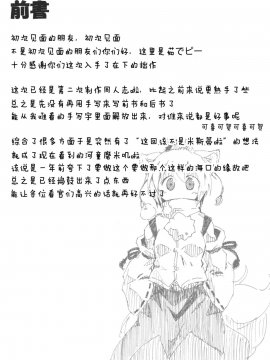 前書
初次见面的朋友，初次见面
不是初次见面的朋友们你们好，这里是猫でビー
十分感谢你们这次入手了在下的拙作
这次已经是第二次制作同人志了，比起之前来说更熟手了些
总之是先没有再用手写来写前书和后书了
能从我难看的手写字里面解放出来，对谁来说都是好事呢
可喜可贺可喜可贺
综合了很多方面子是突然有了"这回该不是米斯蒂啦"的想法
就成了现在看到的河童磨米叽啦
该说是一年前夸下了要做这个要做那个这样的海口的缘故吧
总之是已经捣鼓出来了点东西
能让各位看官们高兴的话就再好不过了